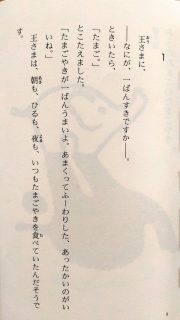 1
王さまに、
──なにが、一ばんすきですか──。
ときいたら、
「たまご。」
とこたえました。
「たまごやきが一ばんうまいよ。あまくってふーわりした、あったかいのがい
いね。」
王さまは、朝も、ひるも、夜も、いつもたまごやきを食べていたんだそうで
す。